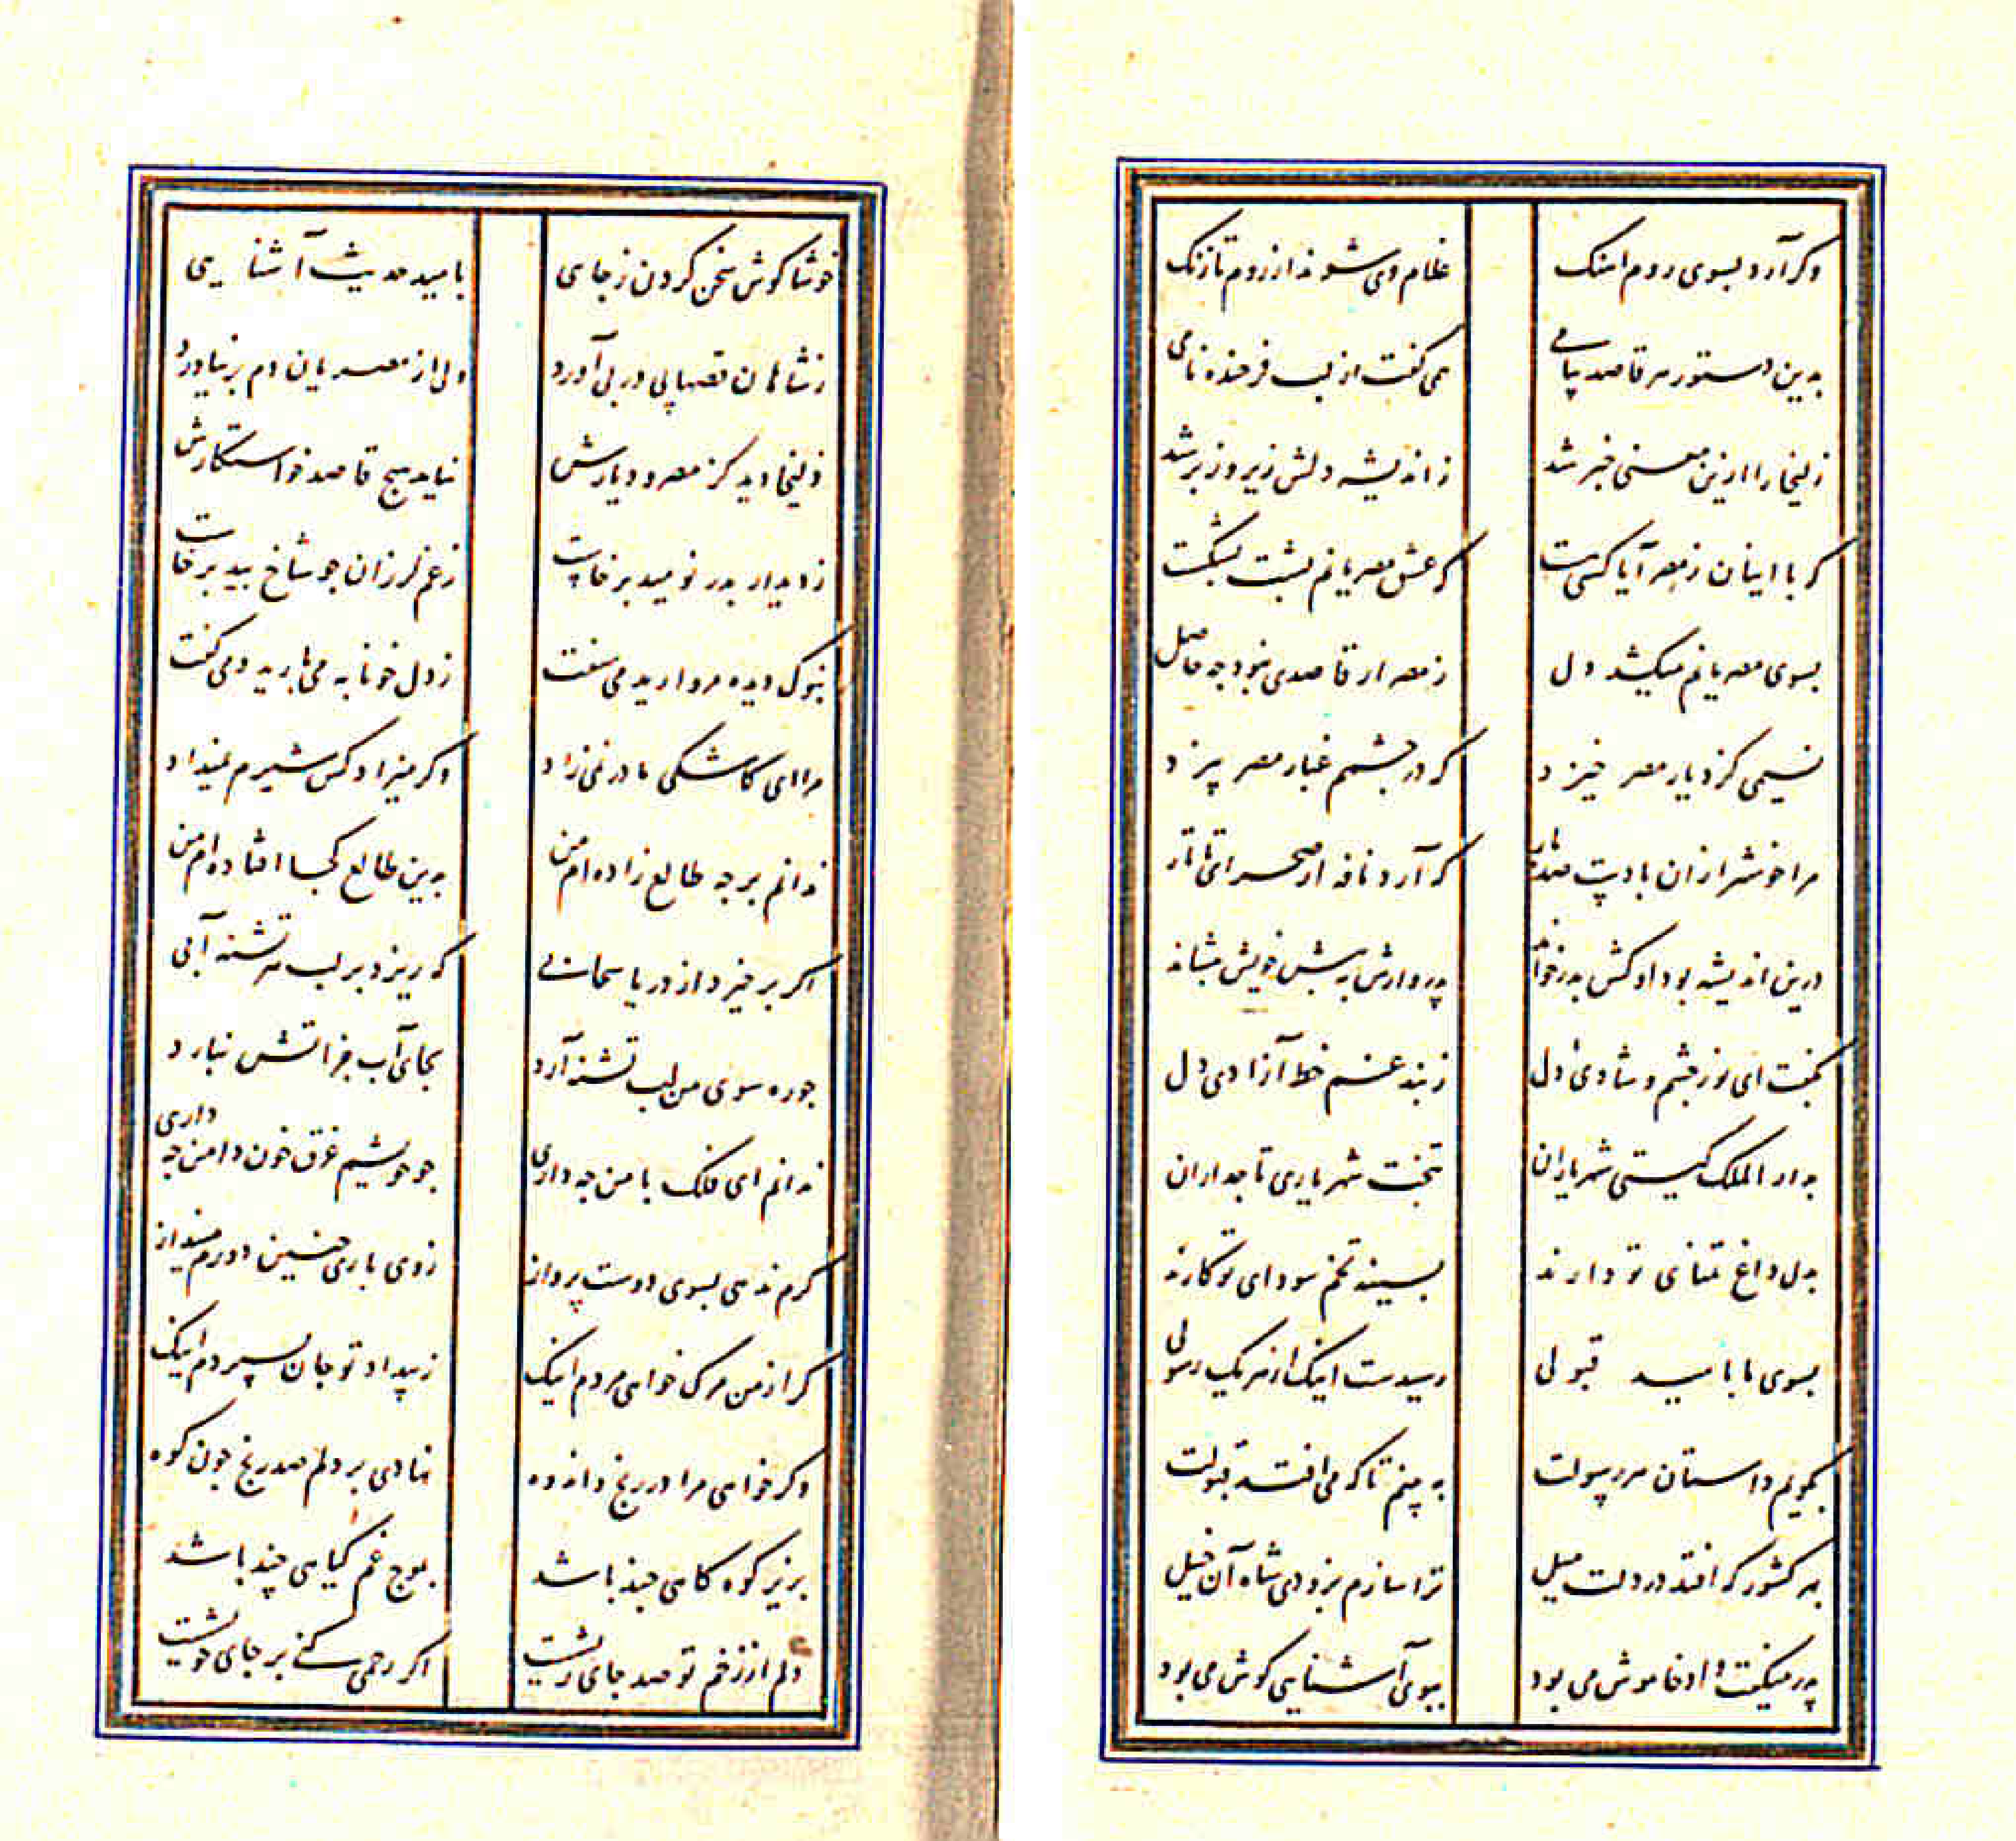 وکر آرد بسوی روم آهنک غلام وی شوند از روم تا زنک
بدین دستور هر قاصد پیامی همی کفت از لب فرخنده نامی
زلیخا را ازین معنی خبر شد ز اندیشه دلش زیر و زبر شد
که با اینان ز مصر آیا کسی هست که عشق مصریانم پشت بشکست
بسوی مصریانم میکشد دل ز مصر ار قاصدی نبود چه حاصل
نسیمی کز دیار مصر خیزد که در چشمم غبار مصر بیزد
مرا خوشتر از آن بادیست صد بار که آرد نافه از صحرای تاتار
درین اندیشه بود او کش پدر خواند پدروارش به پیش خویش بنشاند
بکفت ای نور چشم و شادی دل ز بند غم خط آزادی دل
بدار الملک کیتی شهریاران بتخت شهریاری تاجداران
بدل داغ تمنای تو دارند بسینه تخم سودای تو کارند
بسوی ما بامید قبولی رسیدست اینک از هر یک رسولی
بکویم داستان هر رسولت به بینم تا که می افتد قبولت
بهر کشور که افتد در دلت میل ترا سازم بزودی شاه آن خیل
پدر میکفت و او خاموش می بود ببوی آشنایی کوش می بود
خوشا کوش سخن کردن ز جایی بامید حدیث آشنایی
ز شاهان قصهایی در پی آورد ولی از مصریان دم بر نیاورد
زلیخا دید کز مصر و دیارش نیاید هیچ قاصد خواستکارش
ز دیدار پدر نومید برخاست ز غم لرزان چو شاخ بید برخاست
بنوک دیده مروارید می سفت ز دل خونابه می بارید و می کفت
مرا ای کاشکی مادر نمی زاد وکر میزاد کس شیرم نمیداد
ندانم بر چه طالع زاده ام من بدین طالع کجا افتاده ام من
اکر برخیزد از دریا سحابی که ریزد بر لب هر تشنه آبی
چو ره سوی من لب تشنه آرد بجای آب جز آتش نبارد
ندانم ای فلک با من چه داری چو خویشم غرق خون دامن چه داری
کرم ندهی بسوی دوست پرواز ز وی باری چنین دورم مینداز
کر از من مرک خواهی مردم اینک ز بیداد تو جان بسپردم اینک
وکر خواهی مرا در رنج و اندوه نهادی بر دلم صد رنج چون کوه
بزیر کوه کاهی چند باشد بموج غم کیاهی چند باشد
دلم از زخم تو صد جای ریشست اکر رحمی کنی بر جای خویشست